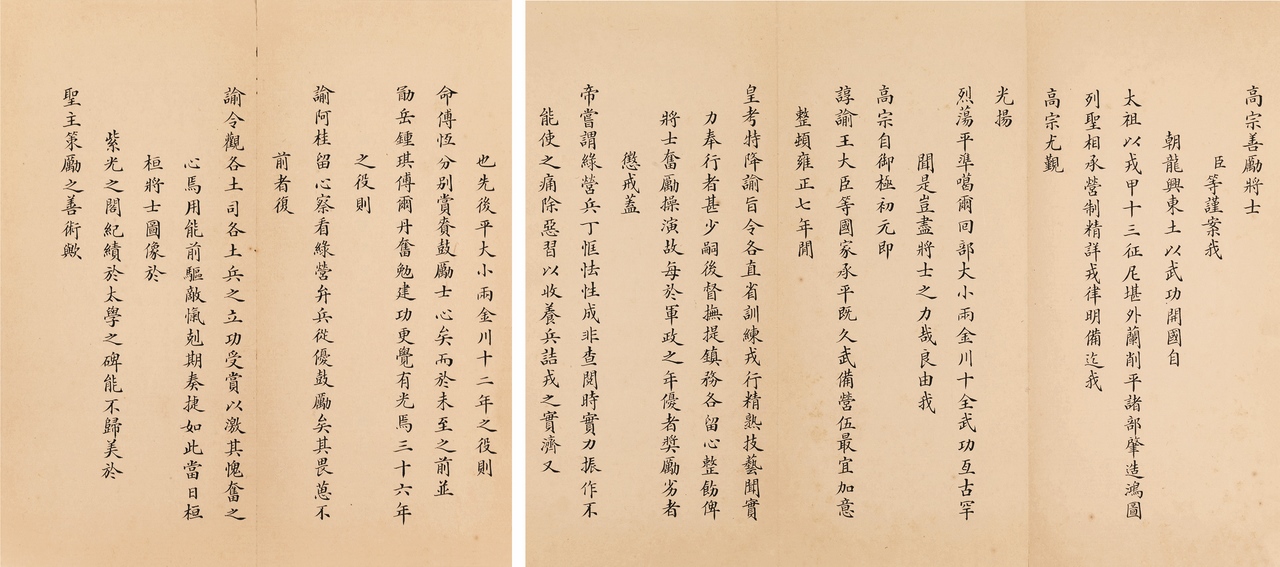 高宗善勵將士
臣等謹案我
朝龍興東土以武功開國自
太祖以戎甲十三征尼堪外蘭削平諸部肇造鴻圖
列聖相承營制精詳戎律明備迄我
高宗尤覲
光揚
烈蕩平準噶爾回部大小兩金川十全武功亙古罕
聞是豈盡將士之力哉良由我
高宗自御極初元即
諄諭王大臣等國家承平既久武備營伍最宜加意
整頓雍正七年閒
皇考特降諭旨令各直省訓練戎行精熟技藝聞實
力奉行者甚少嗣後督撫提鎮務各留心整飭俾
將士奮勵操演故每於軍政之年優者獎勵劣者
懲戒蓋
帝嘗謂綠營兵丁恇怯性成非查閱時實力振作不
能使之痛除惡習以收養兵詰戎之實濟又
也先後平大小兩金川十二年之役則
命傅恆分別賞賚鼓勵士心矣而於未至之前並
勖岳鍾琪傅爾丹奮勉建功更覺有光焉三十六年
之役則
諭阿桂留心察看綠營弁兵從優鼓勵矣其畏葸不
前者復
諭令觀各土司各土兵之立功受賞以激其愧奮之
心焉用能前驅敵愾剋期奏捷如此當日桓
桓將士圖像於
紫光之閣紀績於太學之碑能不歸美於
聖主策勵之善術歟